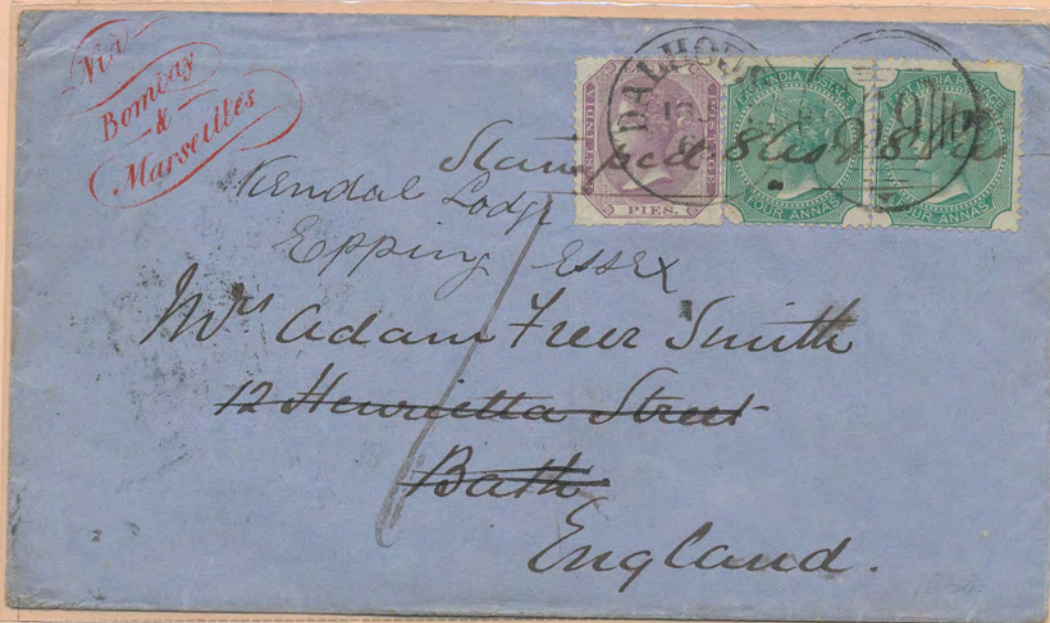 Via
Bombay
&
Marseilles
DALHOUS
EAST INDIA POSTAGE
PIES.
EAST INDIA POSTAGE
FOUR ANNAS
EAST INDIA POSTAGE
FOUR ANNAS
19
Stamped 8 as 8 pie
Kendal Lodge
Epping Essex
1
Mrs Adam Freer Smith
12 Henrietta Street
Bath
England.